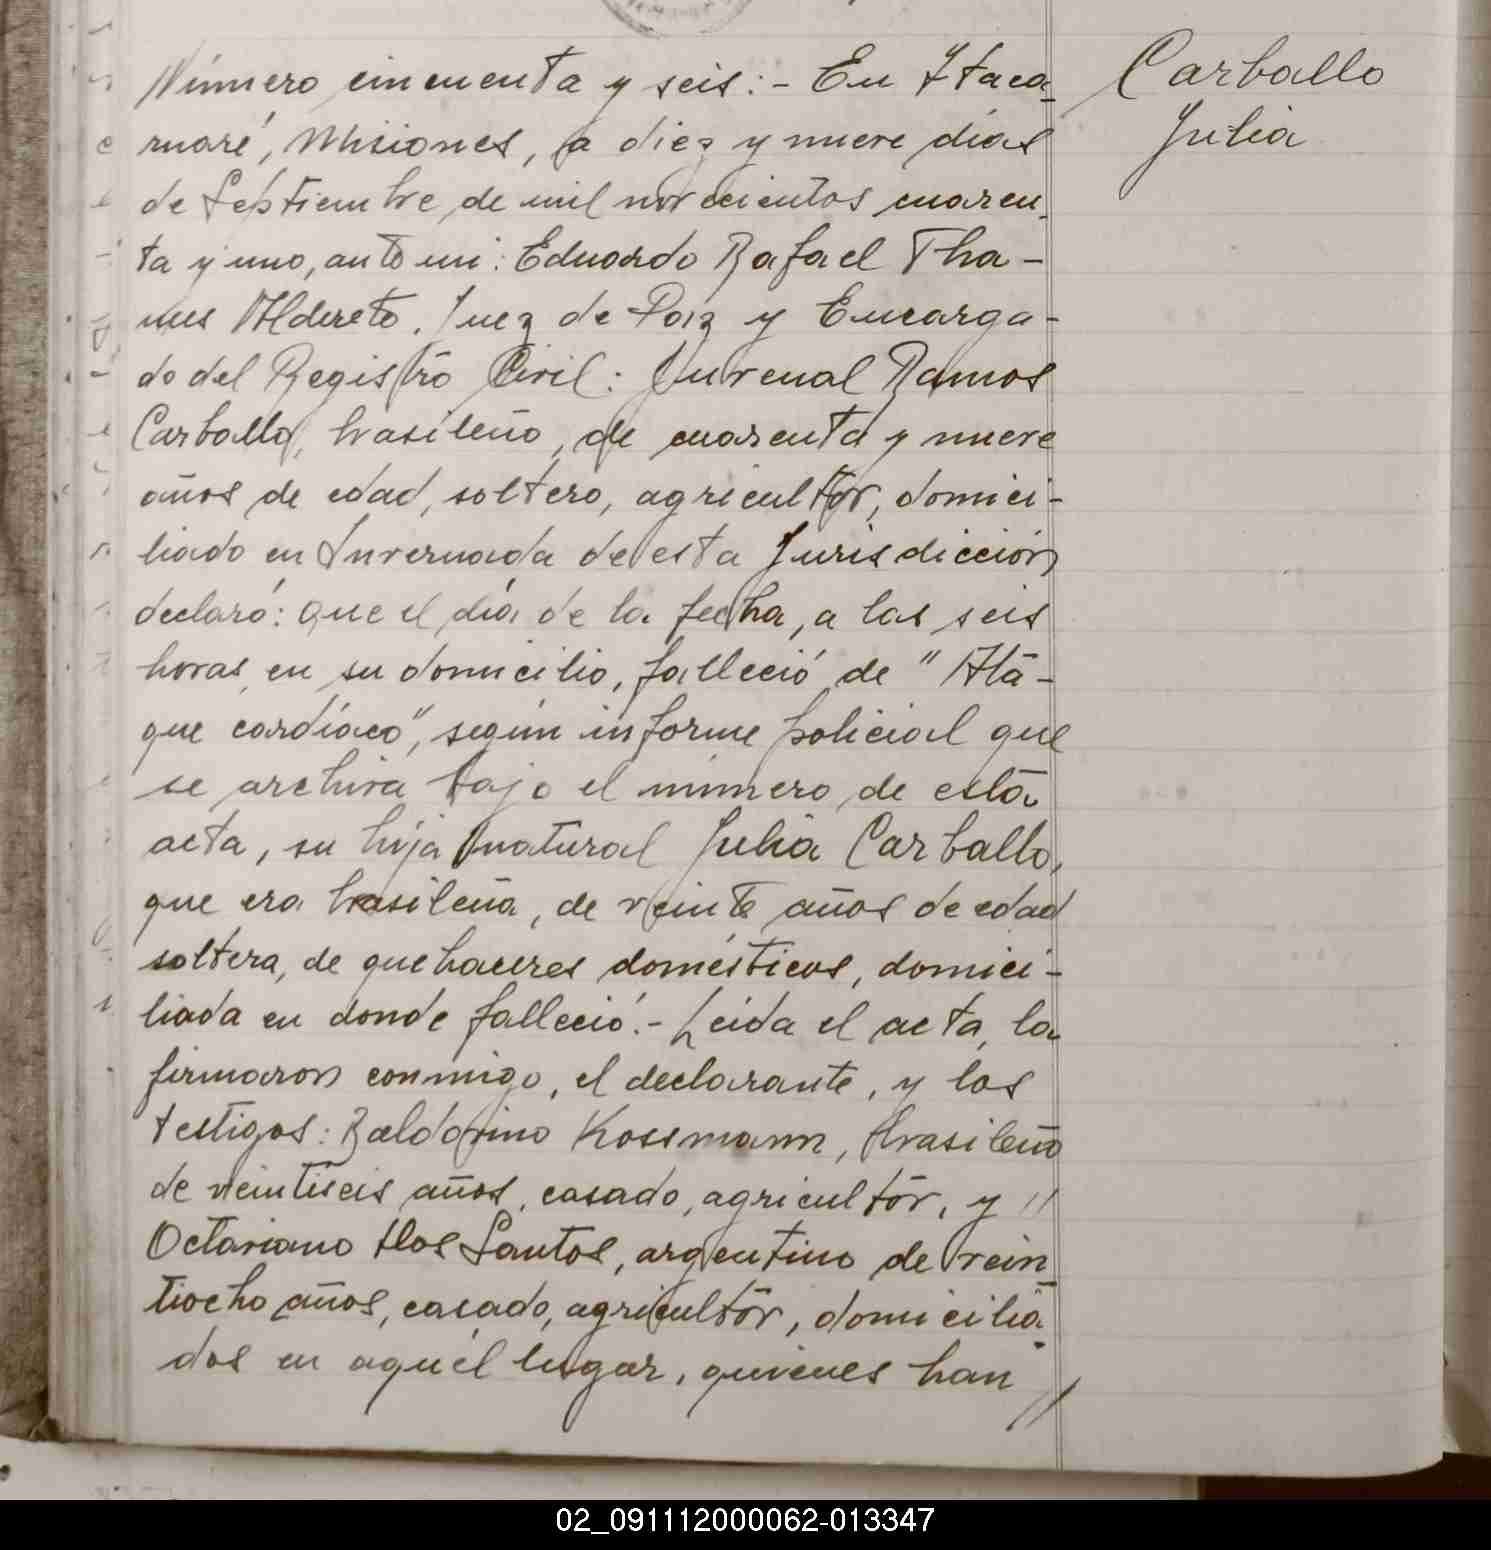 Carballo
Julia
Número cincuenta y seis:- En Itaca-
ruaré, Misiones, a diez y nueve días
de Septiembre de mil novecientos cuaren-
ta y uno, ante mi: Eduardo Rafael Tha-
mes Alderete, Juez de Paz y Encarga-
do del Registro Civil: Juvenal Ramos
Carballo, brasileño, de cuarenta y nueve
años de edad, soltero, agricultor, domici-
liado en Invernada de esta Jurisdicción
declaró: Que el día de la fecha, a las seis
horas, en su domicilio, falleció de "Ata-
que cardíaco", según informe policial que
se archiva bajo el número de esta
acta, su hija natural Julia Carballo,
que era brasileña, de veinte años de edad
soltera, de quehaceres domésticos, domici-
liada en donde falleció.- Leida el acta, la
firmaron conmigo, el declarante, y los
testigos: Baldovino Kossmann, brasileño
de veintiseis años, casado, agricultor, y //
Octaviano Dos Santos, argentino de vein
tiocho años, casado, agricultor, domicilia-
dos en aquél lugar, quienes han //
02_091112000062-013347